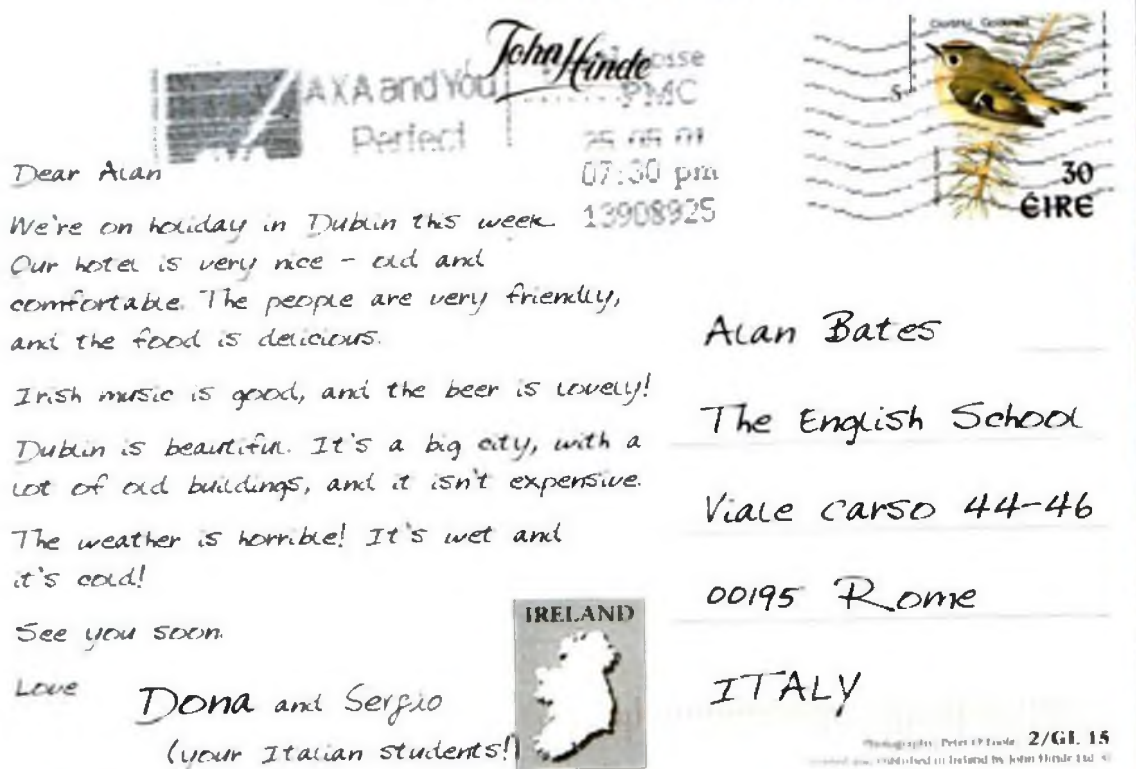 John Hinde
AXA and You
Perfect
PMC
25 05 01
07:30 pm
13908925
30
ÉIRE
Dear Alan
We're on holiday in Dublin this week.
Our hotel is very nice – old and
comfortable. The people are very friendly,
and the food is delicious.
Irish music is good, and the beer is lovely!
Dublin is beautiful. It's a big city, with a
lot of old buildings, and it isn't expensive.
The weather is horrible! It's wet and
it's cold!
See you soon.
Love
Dona and Sergio
(your Italian students!)
IRELAND
Alan Bates
The English School
Viale Carso 44-46
00195 Rome
ITALY
2/GI. 15
Published in Ireland by John Hinde Ltd.